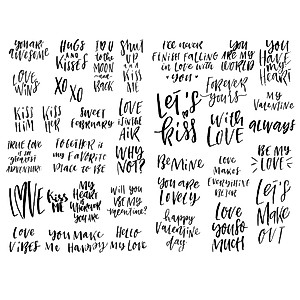 you are
awesome
Hugs
AND
Kisses
I ♡ U
to the
moon
AND
Back
Shut
up
AND
Kiss
me
Love
wins
XO
XO
Kiss
Him
Kiss
Her
sweet
february
Love
is in the
air
True love
is the
greatest
adventure
Together is
my favorite
place to be
Why
not?
LOVE
Kiss
me
my
heart
is wherever
you are
Will you
be my
valentine?
Hello
my
Love
Love
Vibes
You make
me Happy
I'll never
finish falling
in love with
you ♥
you
are my
world
you
have
my
Heart
Let's
kiss
Forever
yours
my
valentine
with
love
always
Be mine
Love
makes
everything
better
Be my
♡ Love!
You are
lovely
Let's
make
out
happy
valentine
day
Love
you so
much